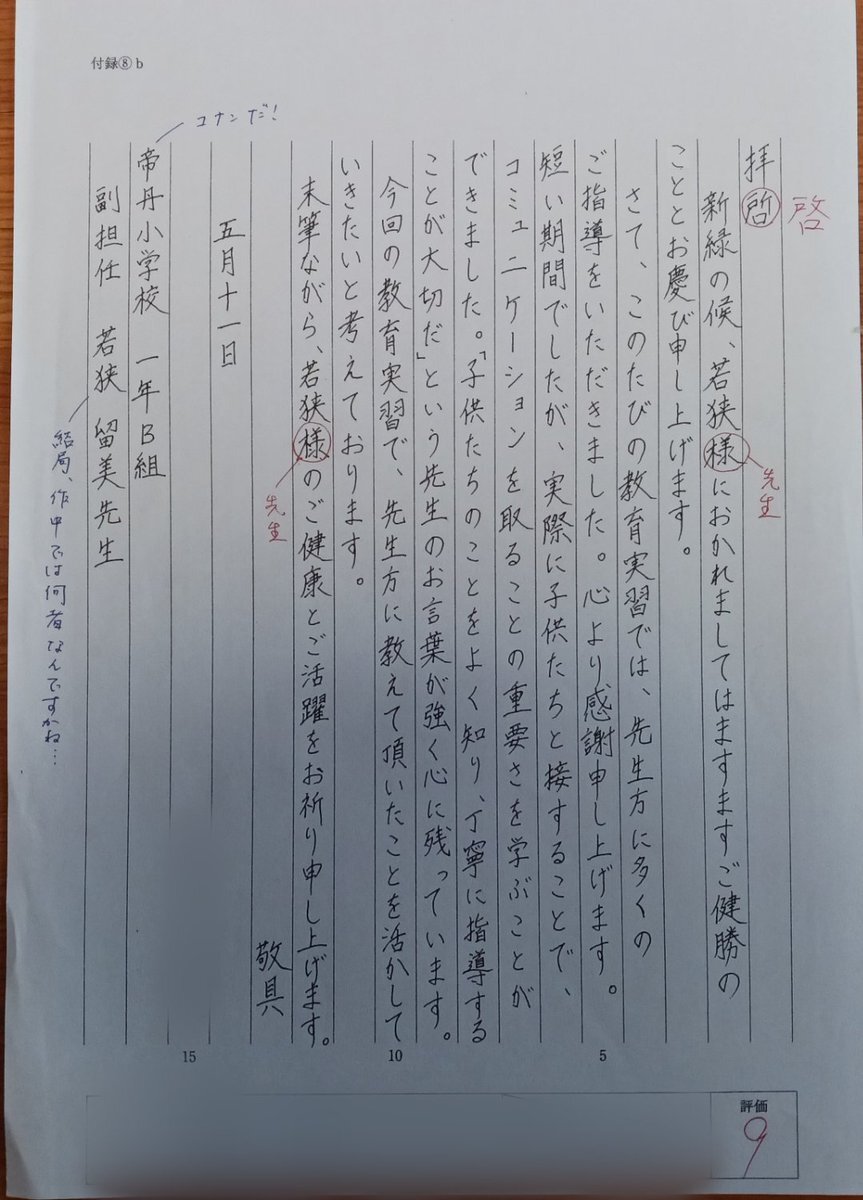 付録⑧b
啓
拝啓
新緑の候、若狭様におかれましてはますますご健勝の
先生
こととお慶び申し上げます。
さて、このたびの教育実習では、先生方に多くの
ご指導をいただきました。心より感謝申し上げます。
短い期間でしたが、実際に子供たちと接することで、
コミュニケーションを取ることの重要さを学ぶことが
できました。「子供たちのことをよく知り、丁寧に指導する
ことが大切だ」という先生のお言葉が強く心に残っています。
今回の教育実習で、先生方に教えて頂いたことを活かして
いきたいと考えております。
末筆ながら、若狭様のご健康とご活躍をお祈り申し上げます。
先生
敬具
五月十一日
帝丹小学校 一年B組
コナンだ!
副担任 若狭 留美先生
結局、作中では何者なんですかね…
5
10
15
評価
9